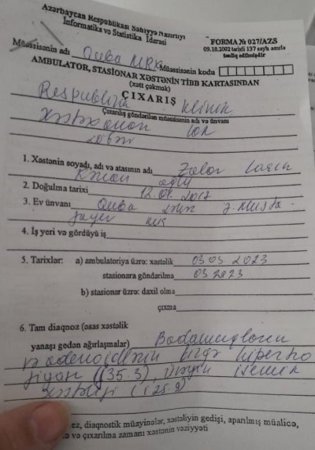 Azərbaycan Respublikası Səhiyyə Nazirliyi
İnformatika və Statistika İdarəsi
FORMA № 027/AZS
09.10.2002 tarixli 137 saylı əmrlə
təsdiq edilmişdir
Müəssisənin adı Quba MRX
Müəssisənin kodu
AMBULATOR, STASİONAR XƏSTƏNİN TİBB KARTASINDAN
(xətt çəkmək)
ÇIXARIŞ
Respublika klinik
Çıxarılış göndərilən müəssisənin adı və ünvanı
xəstəxanası LOR
1. Xəstənin soyadı, adı və atasının adı
oğlu
2. Doğulma tarixi 12.01.2017
3. Ev ünvanı Quba
4. İş yeri və gördüyü iş
5. Tarixlər: a) ambulatoriya üzrə: xəstəlik 03 03 2023
stasionara göndərilmə 03 2023
b) stasionar üzrə: daxil olma
çıxma
6. Tam diaqnoz (əsas xəstəlik
yanaşı gedən ağırlaşmalar) Badamcıqların
adenoidlərin birgə hipertro
fiyası (J35.3)
xəstəliyi (I25.9)
ez, diaqnostik müayinələr, xəstəliyin gedişi, aparılmış müalicə,
və çıxarılma zamanı xəstənin vəziyyəti